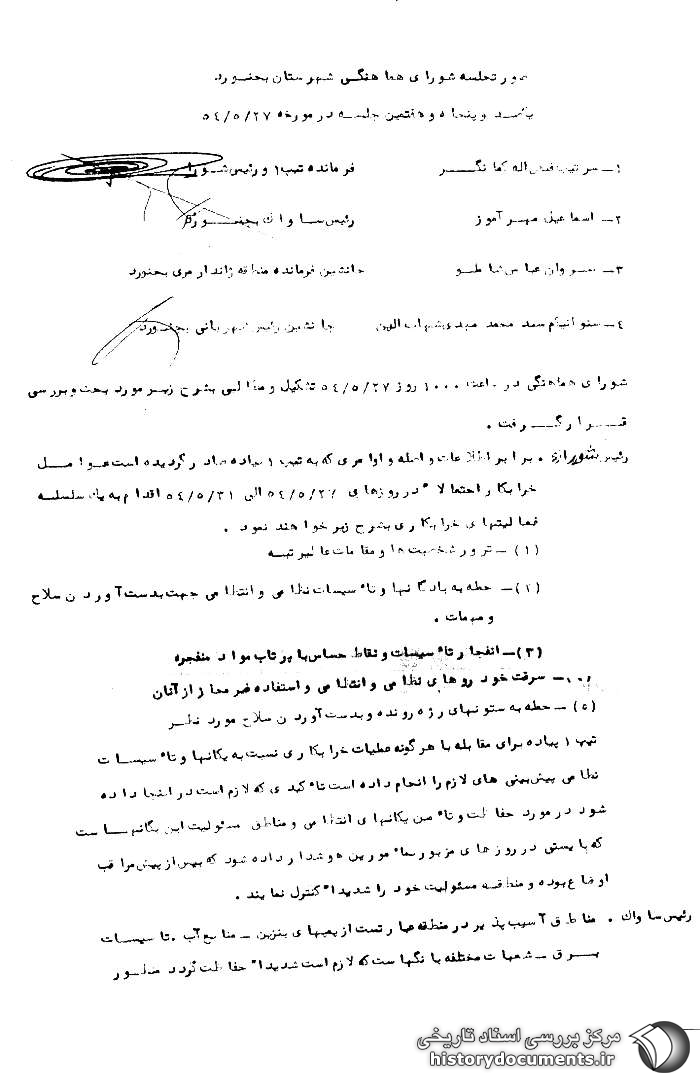 صورتجلسه شورای هماهنگی شهرستان بجنورد
یکصد و پنجاه و هفتمین جلسه در مورخه ۵۴/۵/۲۷
۱ـ سرتیپ فضل اله کمانگر فرمانده تیپ ۱ و رئیس شورا
۲ـ اسماعیل مهرآموز رئیس ساواک بجنورد
۳ـ سروان عباس شاملو جانشین فرمانده منطقه ژاندارمری بجنورد
۴ـ ستوانیکم سید محمد مهدی شهاب الدین جانشین رئیس شهربانی بجنورد
شورای هماهنگی در ساعت ۱۰۰۰ روز ۵۴/۵/۲۷ تشکیل و مطالبی بشرح زیر مورد بحث و بررسی
قرار گرفت .
رئیس شورا . برابر اطلاعات واصله و اوامری که به تیپ ۱ پیاده صادر گردیده است عوامل
خرابکار احتمالا" در روزهای ۵۴/۵/۲۷ الی ۵۴/۵/۳۱ اقدام به یک سلسله
فعالیتهای خرابکاری بشرح زیر خواهند نمود .
(۱) ـ ترور شخصیت ها و مقامات عالیرتبه
(۲) ـ حمله به پادگانها و تاسیسات نظامی و انتظامی جهت بدست آوردن سلاح
و مهمات .
(۳) ـ انفجار تاسیسات و نقاط حساس با پرتاب مواد منفجره
ـ سرقت خودروهای نظامی و انتظامی و استفاده غیر مجاز از آنان
(۵) ـ حمله به ستونهای رژه رونده و بدست آوردن سلاح مورد نظر
تیپ ۱ پیاده برای مقابله با هرگونه عملیات خرابکاری نسبت به یکانها و تاسیسات
نظامی پیش بینی های لازم را انجام داده است تاکیدی که لازم است در اینجا داده
شود در مورد حفاظت و تامین یکانهای انتظامی و مناطق مسئولیت این یگانهاست
که بایستی در روزهای مزبور بمامورین هوشدار داده شود که بیش از پیش مراقب
اوضاع بوده و منطقه مسئولیت خود را شدیدا" کنترل نمایند .
رئیس ساواک . مناطق آسیب پذیر در منطقه عبارتست از پمپهای بنزین ـ منابع آب . تاسیسات
برق ـ شعبات مختلفه بانکهاست که لازم است شدیدا" حفاظت گردد منظور
مرکز بررسی اسناد تاریخی
historydocuments.ir